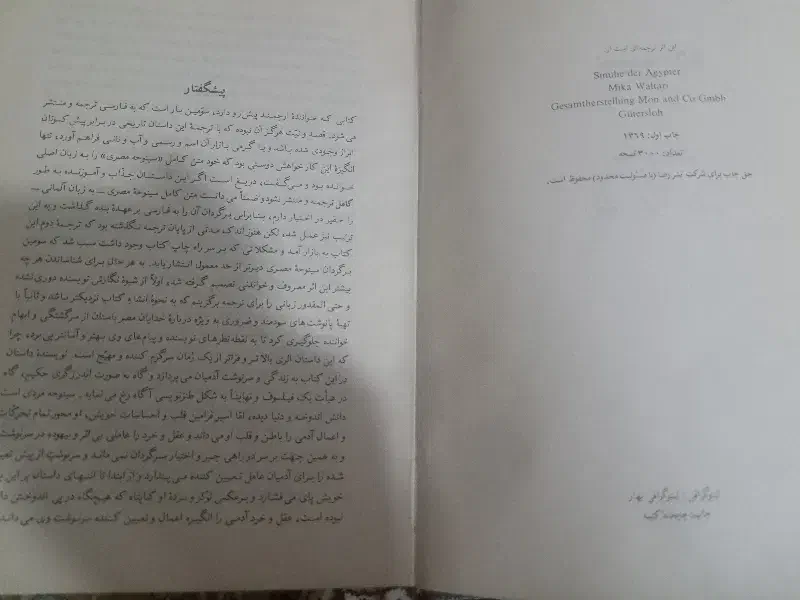 این اثر ترجمه‌ای است از
Sinuhe der Ägypter
Mika Waltari
Gesamtherstellung Mon and Co Gmbh
Gütersloh
چاپ اول: ۱۳۶۹
تعداد: ۳۰۰۰ نسخه
حق چاپ برای شرکت نشر رضا (با مسئولیت محدود) محفوظ است.
لیتوگرافی: لیتوگرافی بهار
پیشگفتار
کتابی که خواننده ارجمند پیش رو دارد، سومین بار است که به فارسی ترجمه و منتشر
می‌شود. قصد و نیت هرگز آن نبوده که با ترجمه این داستان تاریخی در برابر پیش کسوتان
ابراز وجودی شده باشد و یا گرمی بازار آن اسم و رسمی و آب و نانی فراهم آورد، تنها
انگیزه این کار خواهش دوستی بود که خود متن کامل «سینوحه مصری» را به زبان اصلی
خوانده بود و می‌گفت، دریغ است اگر این داستان جذاب و آموزنده به طور
کامل ترجمه و منتشر نشود و ضمناً می‌دانست متن کامل سینوحه مصری ــ به زبان آلمانی ــ
را حقیر در اختیار دارم، بنابراین برگردان آن را به فارسی بر عهده بنده گذاشت و به این
ترتیب نیز عمل شد، لکن هنوز اندک مدتی از پایان ترجمه نگذشته بود که ترجمه دوم این
کتاب به بازار آمد و مشکلاتی که بر سر راه چاپ کتاب وجود داشت سبب شد که سومین
برگردان سینوحه مصری دیرتر از حد معمول انتشار یابد. به هر حال برای شناساندن هر چه
بیشتر این اثر معروف و خواندنی تصمیم گرفته شد، اولاً از شیوه نگارش نویسنده دوری نشده
و حتی المقدور زبانی را برای ترجمه برگزینم که به نحوه انشا و کتاب نزدیکتر باشد و ثانیاً با
تهیه پانوشت‌های سودمند و ضروری به ویژه درباره خدایان مصر باستان از سرگشتگی و ابهام
خواننده جلوگیری کرد تا به نقطه نظرهای نویسنده و پیام‌های وی بهتر و آسانتر پی برد، چرا
که این داستان اثری بالاتر و فراتر از یک رمان سرگرم کننده و مهیج است. نویسنده داستان
در این کتاب به زندگی و سرنوشت آدمیان می‌پردازد و گاه به صورت اندرزگری حکیم، گاه
در هیأت یک فیلسوف و نهایتاً به شکل طنزنویسی آگاه رخ می‌نماید. سینوحه مردی است
دانش اندوخته و دنیا دیده، امّا اسیر فرامین قلب و احساسات خویش، او محور تمام تحرکات
و اعمال آدمی را باطن و قلب او می‌داند و عقل و خرد را عاملی بی اثر و بیهوده در سرنوشت
و به همین جهت بر سر دو راهی جبر و اختیار سرگردان نمی‌ماند و سرنوشتِ از پیش تعیین
شده را برای آدمیان عامل تعیین کننده می‌پندارد و از ابتدا تا انتهای داستان بر این
خویش پای می‌فشارد و برعکس نوکر و بردهٔ او کاپتاه که هیچگاه در پی اندوختن
نبوده است، عقل و خرد آدمی را انگیزه اعمال و تعیین کننده سرنوشت وی می‌داند